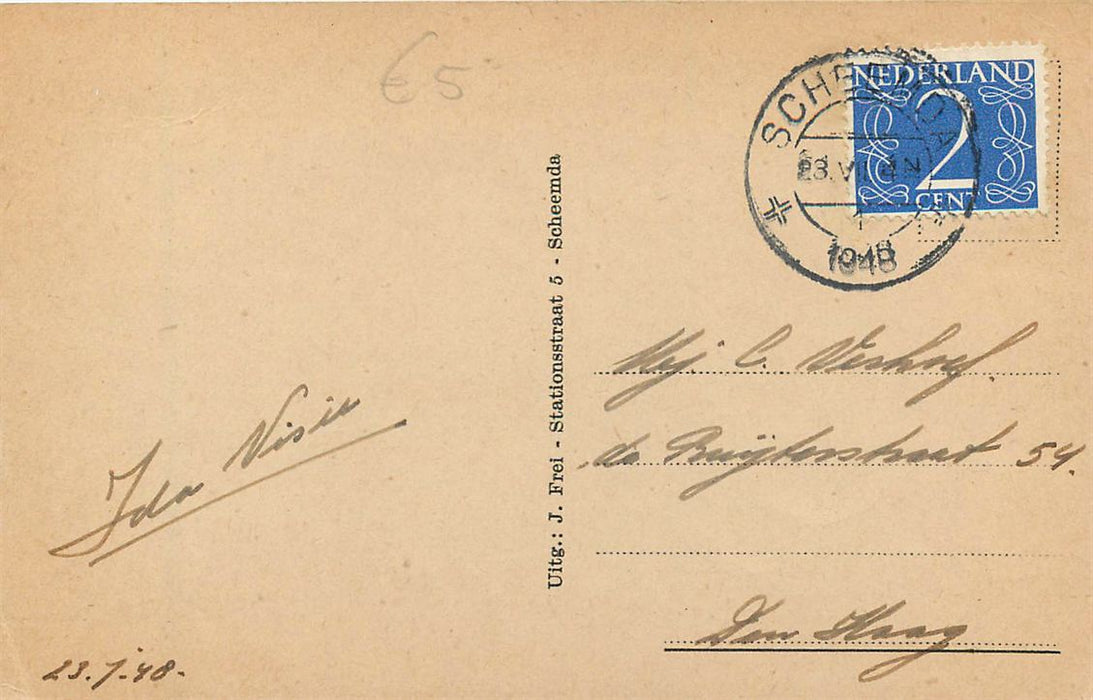 €5
NEDERLAND
2
CENT
SCHEEMDA
23.VII
1948
Uitg.: J. Frei - Stationsstraat 5 - Scheemda
Mej. C. Verhoef.
de Ruijterstraat 54.
Den Haag
Ida Visie
23.7.48.